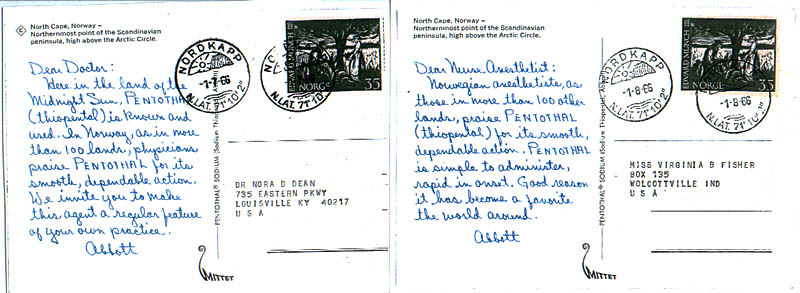 © North Cape, Norway –
Northernmost point of the Scandinavian
peninsula, high above the Arctic Circle.
NORDKAPP
-1-7-66
N.LAT. 71°10'2"
NORGE
35
Dear Doctor:
Here in the land of the
Midnight Sun, PENTOTHAL
(thiopental) is known and
used. In Norway, as in more
than 100 lands, physicians
praise PENTOTHAL for its
smooth, dependable action.
We invite you to make
this agent a regular feature
of your own practice.
Abbott
PENTOTHAL® SODIUM (Sodium Thiopental, Abbott)
DR NORA D DEAN
735 EASTERN PKWY
LOUISVILLE KY 40217
U S A
MITTET
North Cape, Norway –
Northernmost point of the Scandinavian
peninsula, high above the Arctic Circle.
NORDKAPP
-1-8-66
N.LAT. 71°10'2"
NORGE
35
Dear Nurse Anesthetist:
Norwegian anesthetists, as
those in more than 100 other
lands, praise PENTOTHAL
(thiopental) for its smooth,
dependable action. PENTOTHAL
is simple to administer,
rapid in onset. Good reason
it has become a favorite
the world around.
Abbott
PENTOTHAL® SODIUM (Sodium Thiopental, Abbott)
MISS VIRGINIA B FISHER
BOX 135
WOLCOTTVILLE IND
U S A
MITTET